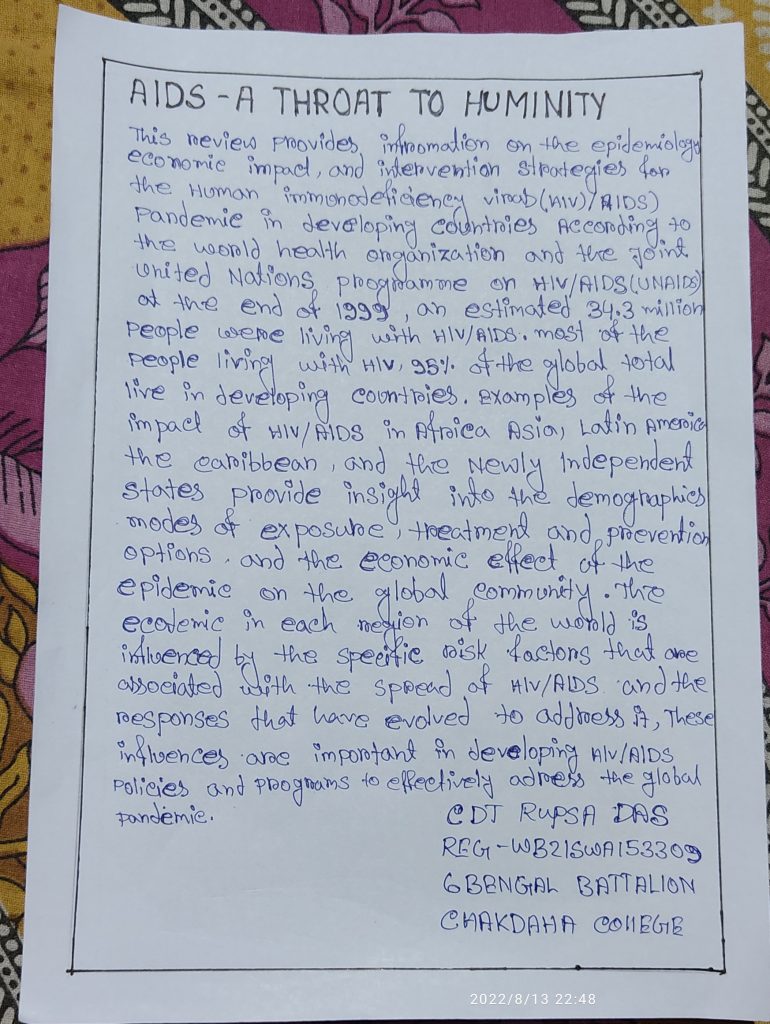 AIDS - A THROAT TO HUMINITY
This review provides infromation on the epidemiology
economic impact, and intervention strategies for
the Human immunodeficiency virab(HIV)/AIDS)
pandemic in developing countries According to
the world health organization and the Joint
United Nations programme on HIV/AIDS(UNAIDS)
at the end of 1999, an estimated 34.3 million
people were living with HIV/AIDS. most of the
people living with HIV, 95% of the global total
live in developing countries. Examples of the
impact of HIV/AIDS in Africa Asia, Latin America
the caribbean, and the Newly Independent
States provide insight into the demographics
modes of exposure, treatment and prevention
options, and the economic effect of the
epidemic on the global community. The
ecodemic in each region of the world is
influenced by the specific risk factors that are
associated with the spread of HIV/AIDS and the
responses that have evolved to address it, These
influences are important in developing HIV/AIDS
policies and programs to effectively adress the global
pandemic.
CDT RUPSA DAS
REG-WB21SWA153309
6 BENGAL BATTALION
CHAKDAHA COllEGE
2022/8/13 22:48